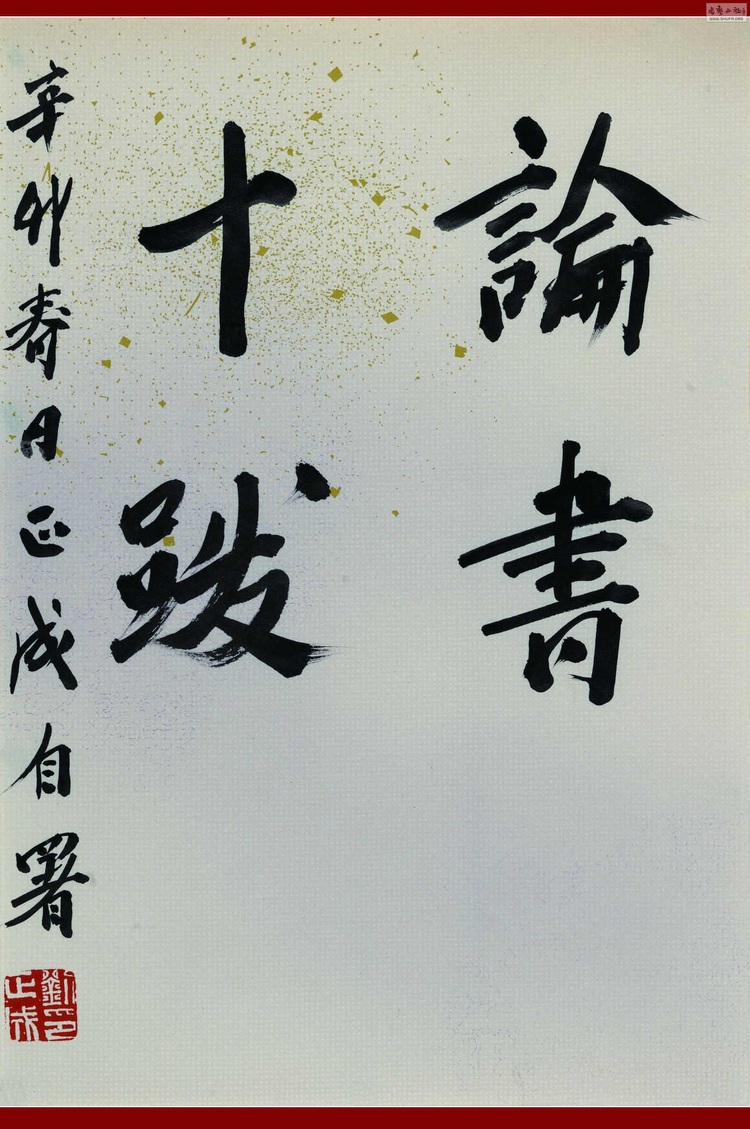 論書
十跋
辛卯春日正成自署
劉正成印
WWW.SHUFA.ORG